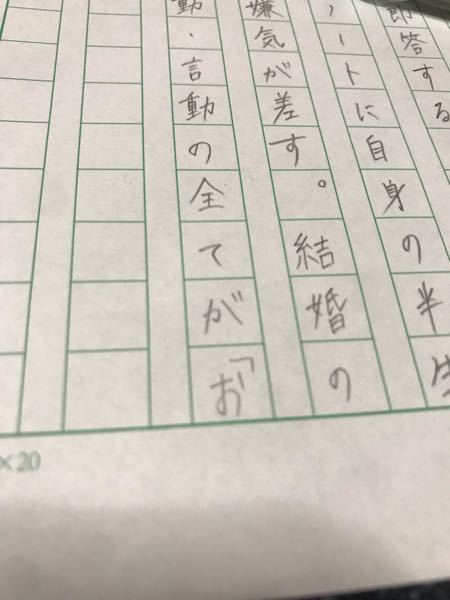 即答する
ートに自身の半生
嫌気が差す。結婚の
動・言動の全てが「お
×20